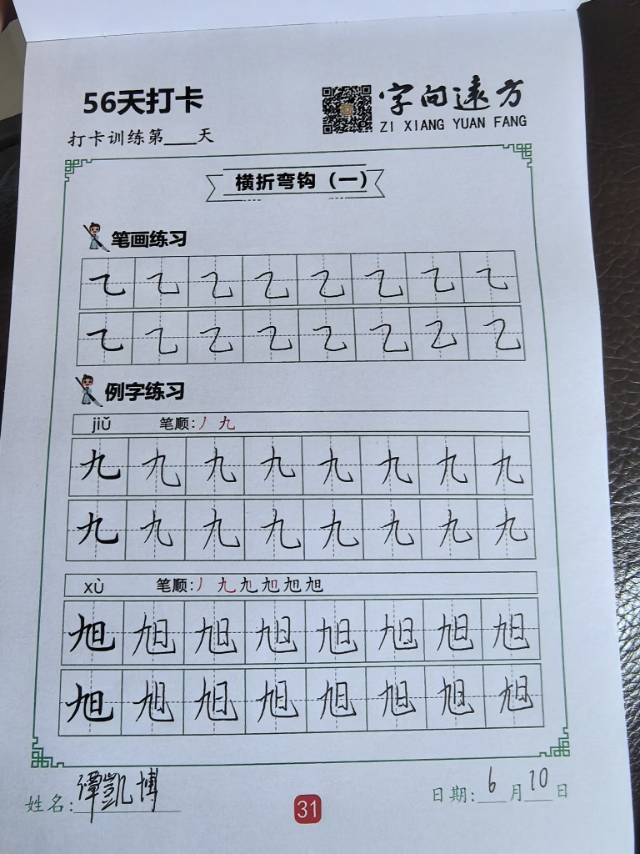 56天打卡
字向远方
ZI XIANG YUAN FANG
打卡训练第___天
横折弯钩（一）
笔画练习
乙 乙 乙 乙 乙 乙 乙 乙
乙 乙 乙 乙 乙 乙 乙 乙
例字练习
jiǔ 笔顺:丿九
九 九 九 九 九 九 九 九
九 九 九 九 九 九 九 九
xù 笔顺:丿九九旭旭旭
旭 旭 旭 旭 旭 旭 旭 旭
旭 旭 旭 旭 旭 旭 旭 旭
姓名:谭凯博
31
日期:6月10日